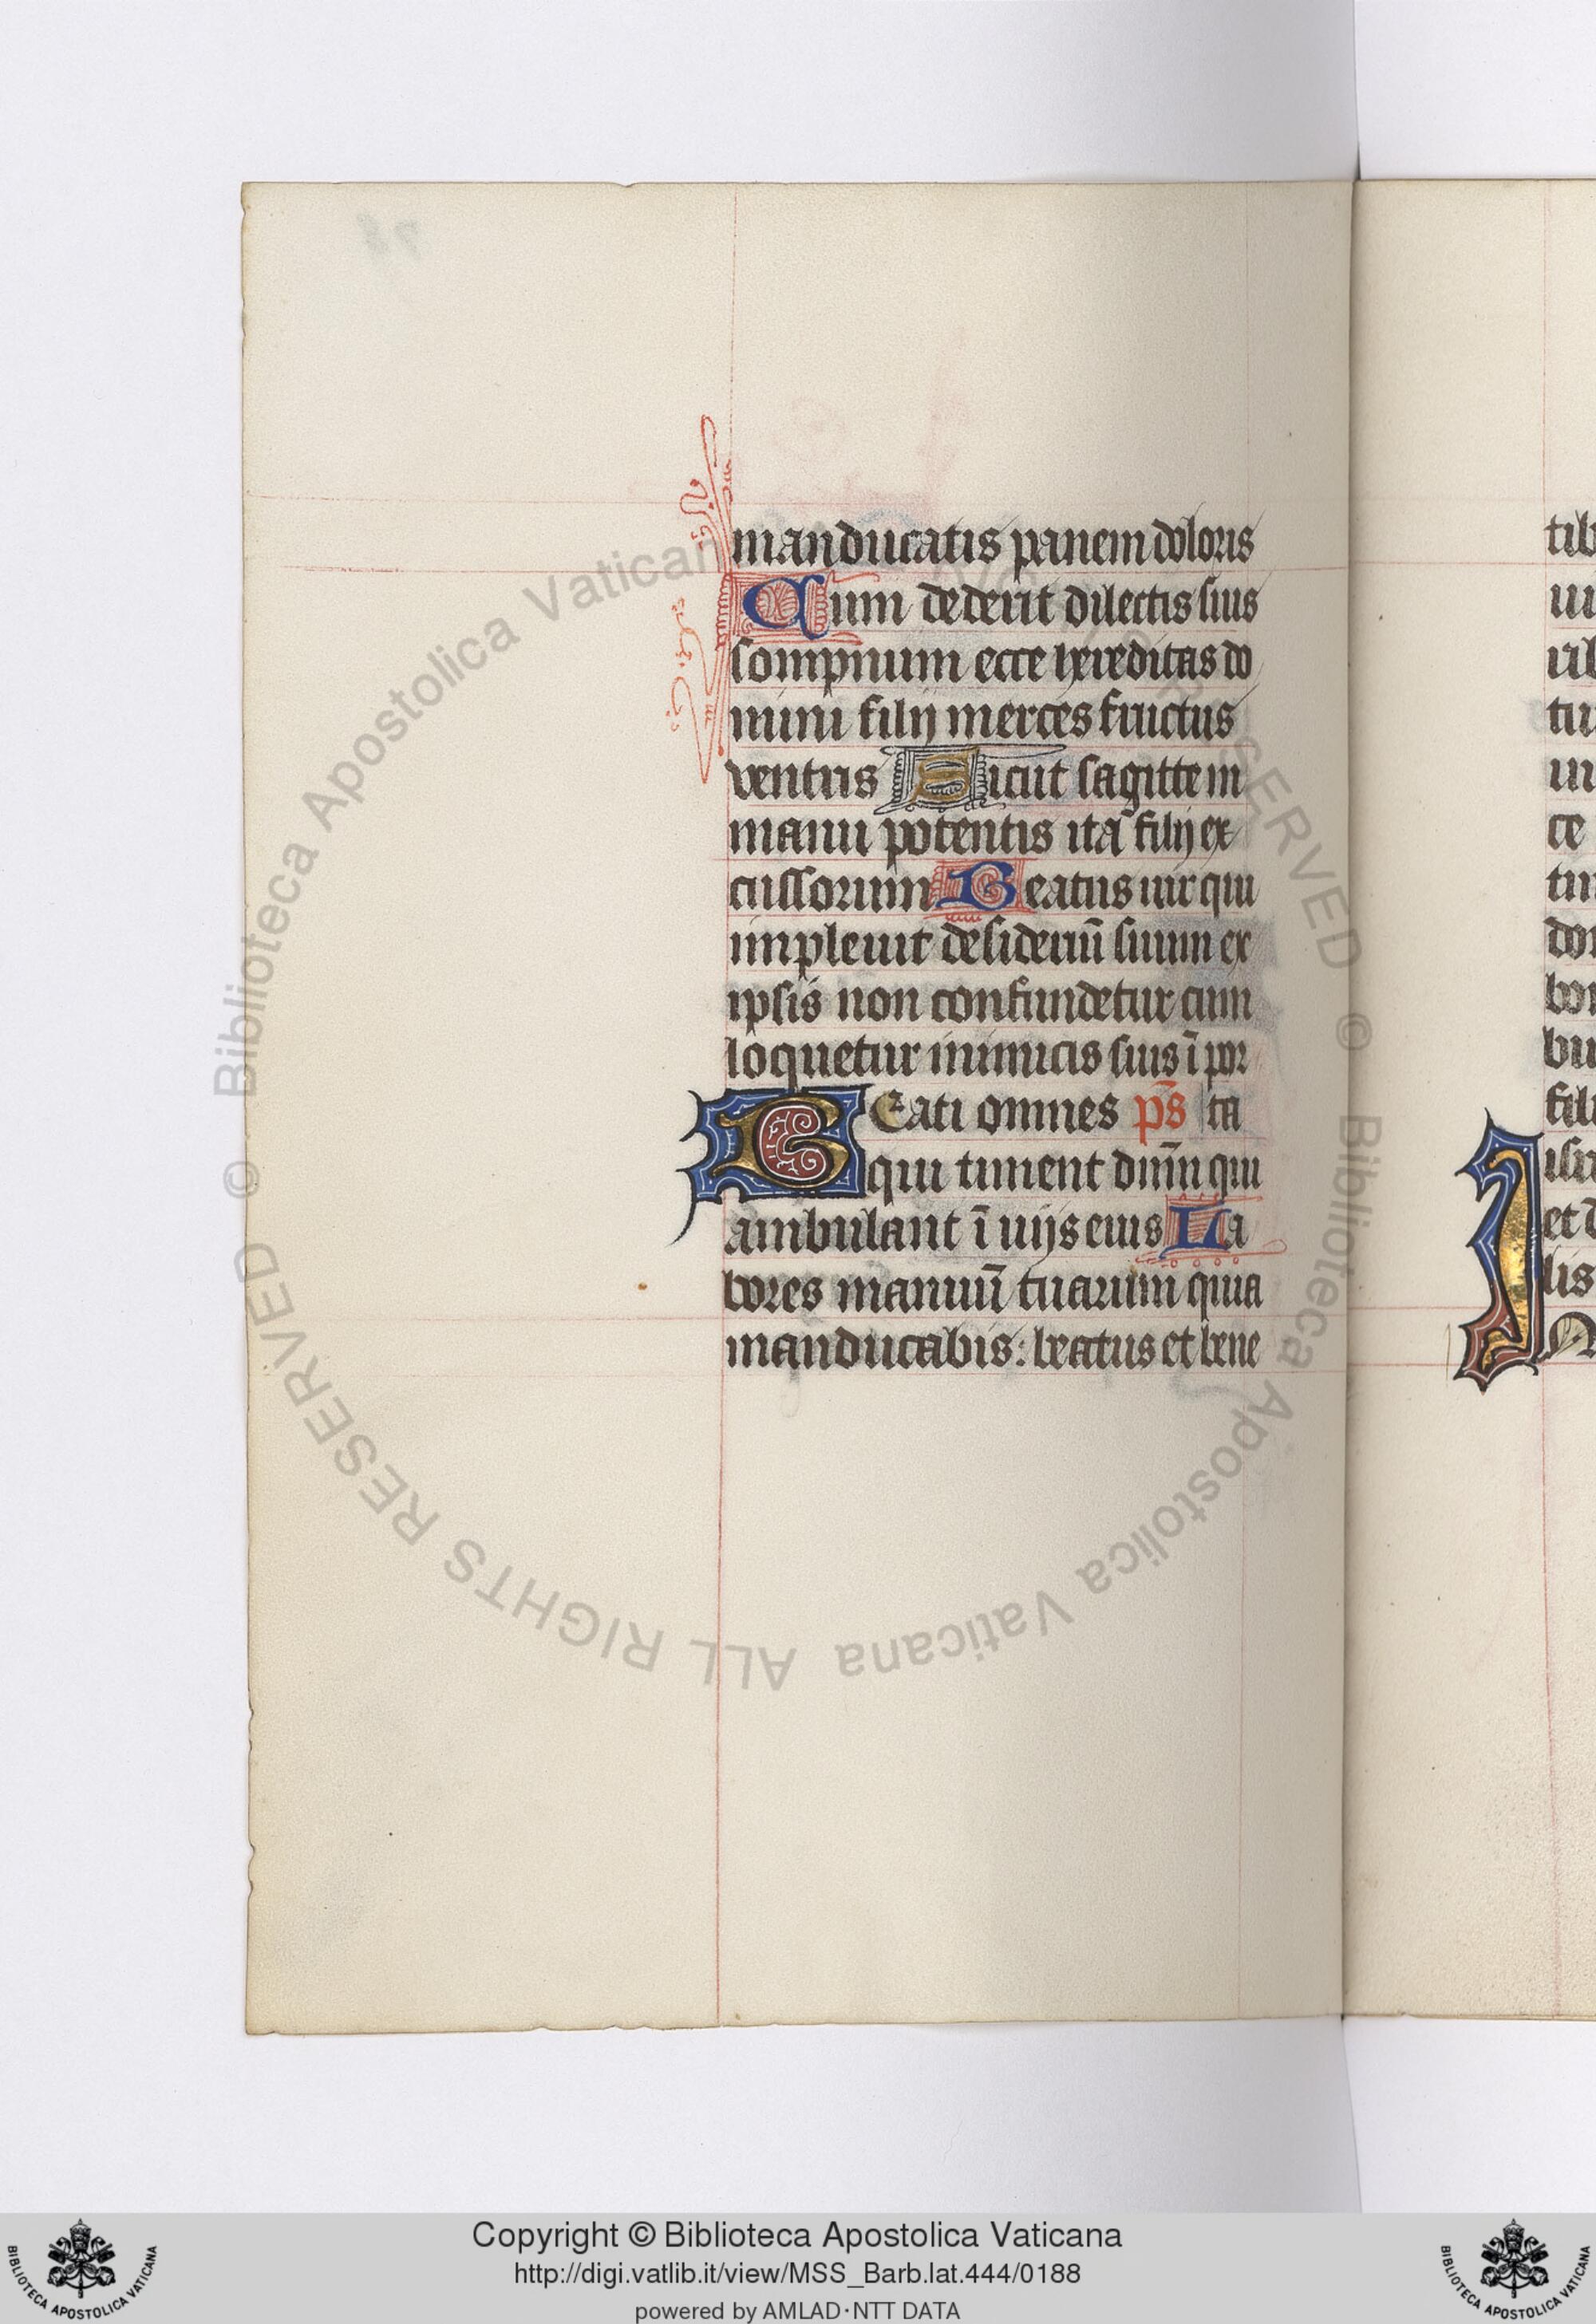 manducatis panem doloris
Cum dederit dilectis suis
sompnum ecce hereditas do
mini filij merces fructus
ventris Sicut sagitte in
manu potentis ita filij ex
cussorum Beatus uir qui
impleuit desideriū suum ex
ipsis non confundetur cum
loquetur inimicis suis ī por
BEati omnes p̄s ta
qui timent dn̄m qui
ambulant ī uijs eius La
bores manuū tuarum quia
manducabis: beatus et bene
tib
ui
rib
tu
in
ce
tim
don
bon
bu
fili
isr
et d
lis
© Biblioteca Apostolica Vaticana ALL RIGHTS RESERVED
© Biblioteca Apostolica Vaticana ALL RIGHTS RESERVED
Copyright © Biblioteca Apostolica Vaticana
http://digi.vatlib.it/view/MSS_Barb.lat.444/0188
powered by AMLAD·NTT DATA
BIBLIOTECA APOSTOLICA VATICANA
BIBLIOTECA APOSTOLICA VATICANA